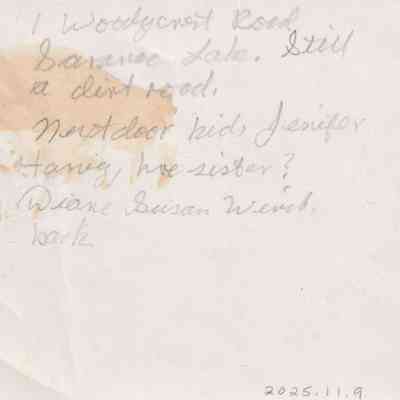 1 Woodycrest Road
Saranac Lake. Still
a dirt road.
Next door kids Jenifer
her sister?
Diane Susan
back
2025.11.9